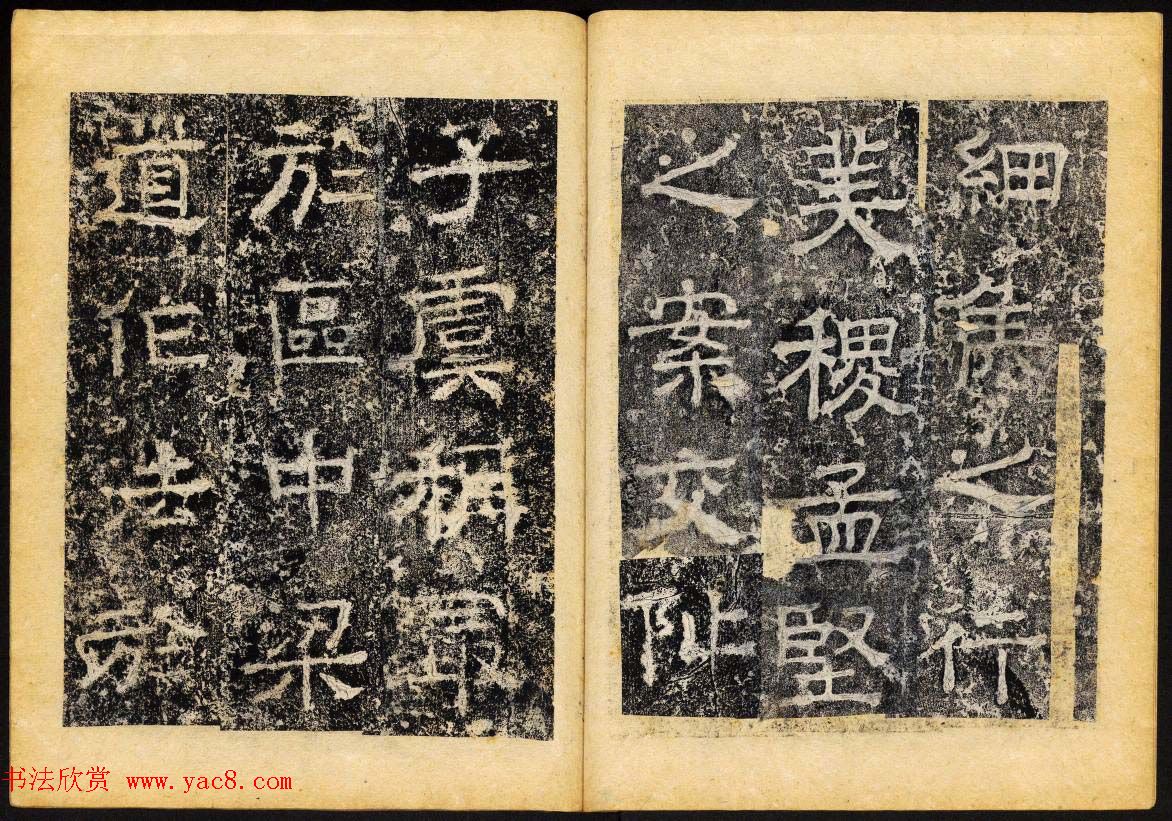 細侯之行
美稷孟堅
之案交阯
子虞稱最
於區中梁
道作
书法欣赏 www.yac8.com